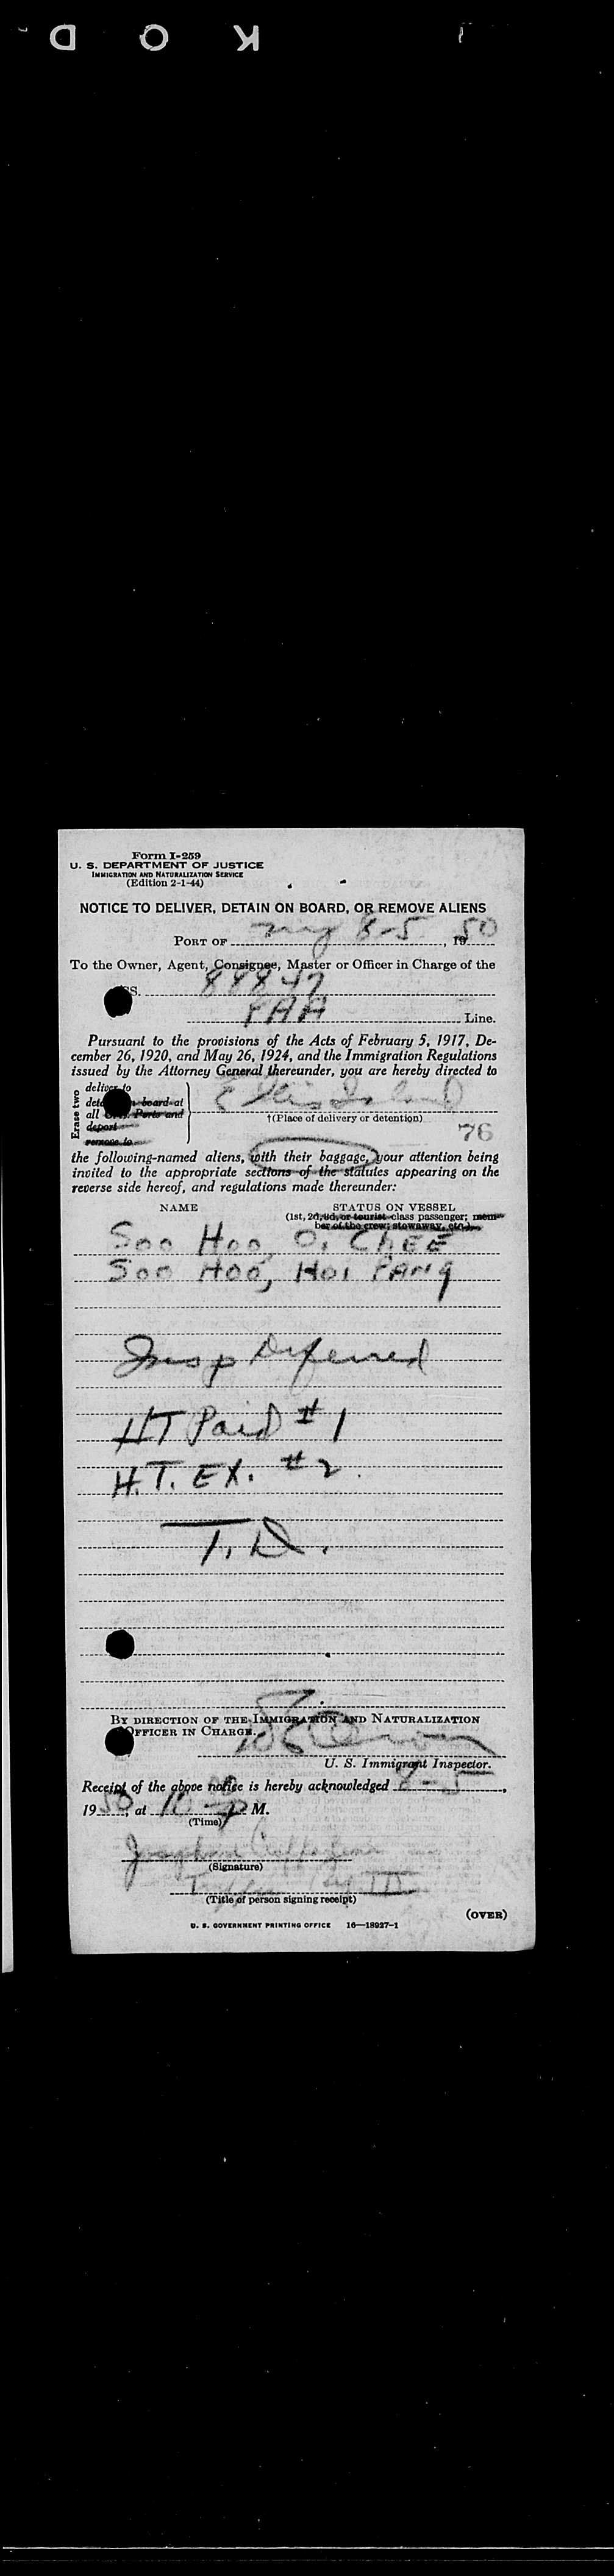 KOD
Form I-259
U. S. DEPARTMENT OF JUSTICE
IMMIGRATION AND NATURALIZATION SERVICE
(Edition 2-1-44)
NOTICE TO DELIVER, DETAIN ON BOARD, OR REMOVE ALIENS
PORT OF ny 8-5, 1950
To the Owner, Agent, Consignee, Master or Officer in Charge of the
SS. 88847
PAA Line.
Pursuant to the provisions of the Acts of February 5, 1917, De-
cember 26, 1920, and May 26, 1924, and the Immigration Regulations
issued by the Attorney General thereunder, you are hereby directed to
Erase two
deliver to
board at
all Ports and
deport
remove to
Ellis Island
†(Place of delivery or detention)
76
the following-named aliens, with their baggage, your attention being
invited to the appropriate sections of the statutes appearing on the
reverse side hereof, and regulations made thereunder:
NAME STATUS ON VESSEL
(1st, 2d, 3d, or tourist class passenger; mem-
ber of the crew; stowaway, etc.)
Soo Hoo, O. CHEE
Soo Hoo, Hoi PANg
Insp Deferred
HT Paid #1
H.T. EX. #2.
T.D.
BY DIRECTION OF THE IMMIGRATION AND NATURALIZATION
OFFICER IN CHARGE.
U. S. Immigrant Inspector.
Receipt of the above notice is hereby acknowledged 8-5,
1950, at 10 P M.
(Time)
(Signature)
(Title of person signing receipt)
(OVER)
U. S. GOVERNMENT PRINTING OFFICE 16—18927-1